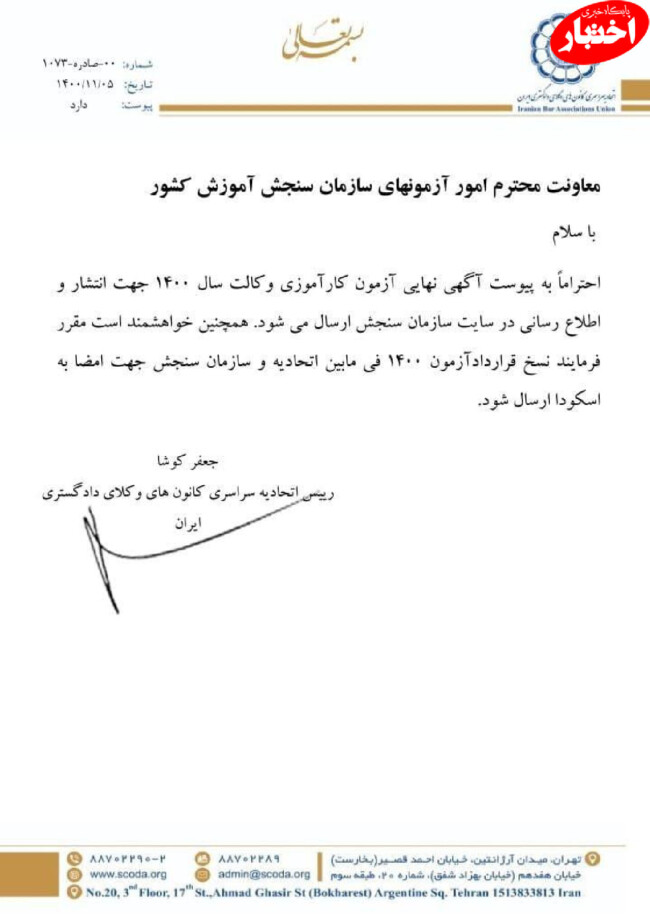 پایگاه خبری
اختبار
بسمه تعالی
شماره: ۰۰-صادره-۱۰۷۳
تاریخ: ۱۴۰۰/۱۱/۰۵
پیوست: دارد
اتحادیه سراسری کانون های وکلای دادگستری ایران
Iranian Bar Associations Union
معاونت محترم امور آزمونهای سازمان سنجش آموزش کشور
با سلام
احتراماً به پیوست آگهی نهایی آزمون کارآموزی وکالت سال ۱۴۰۰ جهت انتشار و
اطلاع رسانی در سایت سازمان سنجش ارسال می شود. همچنین خواهشمند است مقرر
فرمایند نسخ قراردادآزمون ۱۴۰۰ فی مابین اتحادیه و سازمان سنجش جهت امضا به
اسکودا ارسال شود.
جعفر کوشا
رییس اتحادیه سراسری کانون های وکلای دادگستری
ایران
تهران، میدان آرژانتین، خیابان احمد قصیر(بخارست) ۸۸۷۰۲۲۸۹ ۸۸۷۰۲۲۹۰-۲
خیابان هفدهم (خیابان بهزاد شفق)، شماره ۲۰، طبقه سوم admin@scoda.org www.scoda.org
No.20, 3rd Floor, 17th St.,Ahmad Ghasir St (Bokharest) Argentine Sq. Tehran 1513833813 Iran